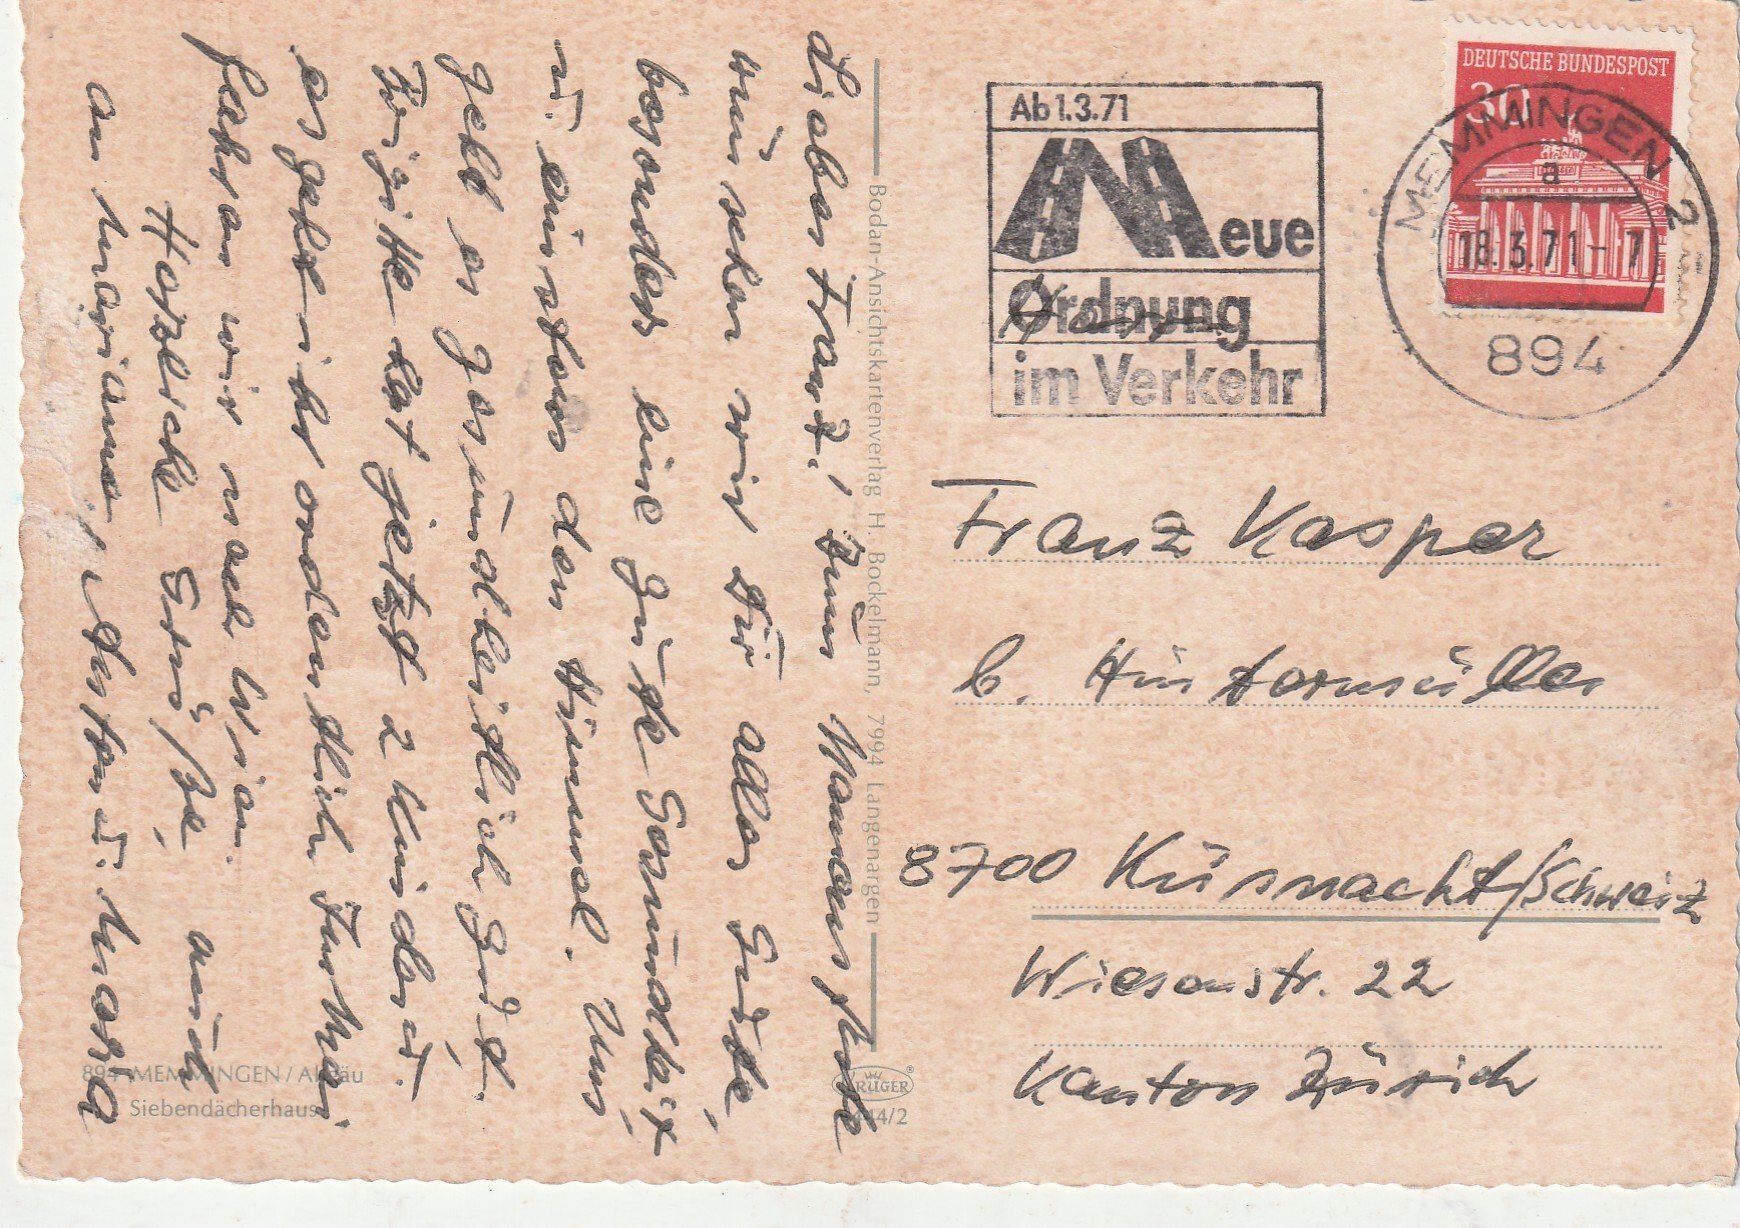 Lieber Franz! Zum Namensfeste
wünschen wir Dir alles Gute,
besonders eine gute Gesundheit
u. einstens den Himmel. Uns
geht es gesundheitlich gut.
Brigitte hat jetzt 2 Kinder u.
es geht ihr ordentlich.
fahren wir nach Wien.
Herzliche Grüße, auch
an Mariane, Anton u. Maria
Bodan-Ansichtskartenverlag H. Bockelmann, 7994 Langenargen
894 MEMMINGEN / Allgäu
Siebendächerhaus
KRÜGER®
444/2
Ab 1.3.71
Neue
Ordnung
im Verkehr
DEUTSCHE BUNDESPOST
30
MEMMINGEN 2
a
18.3.71-7
894
Franz Kasper
b. Hintermüller
8700 Küsnacht/Schweiz
Wiesenstr. 22
Kanton Zürich